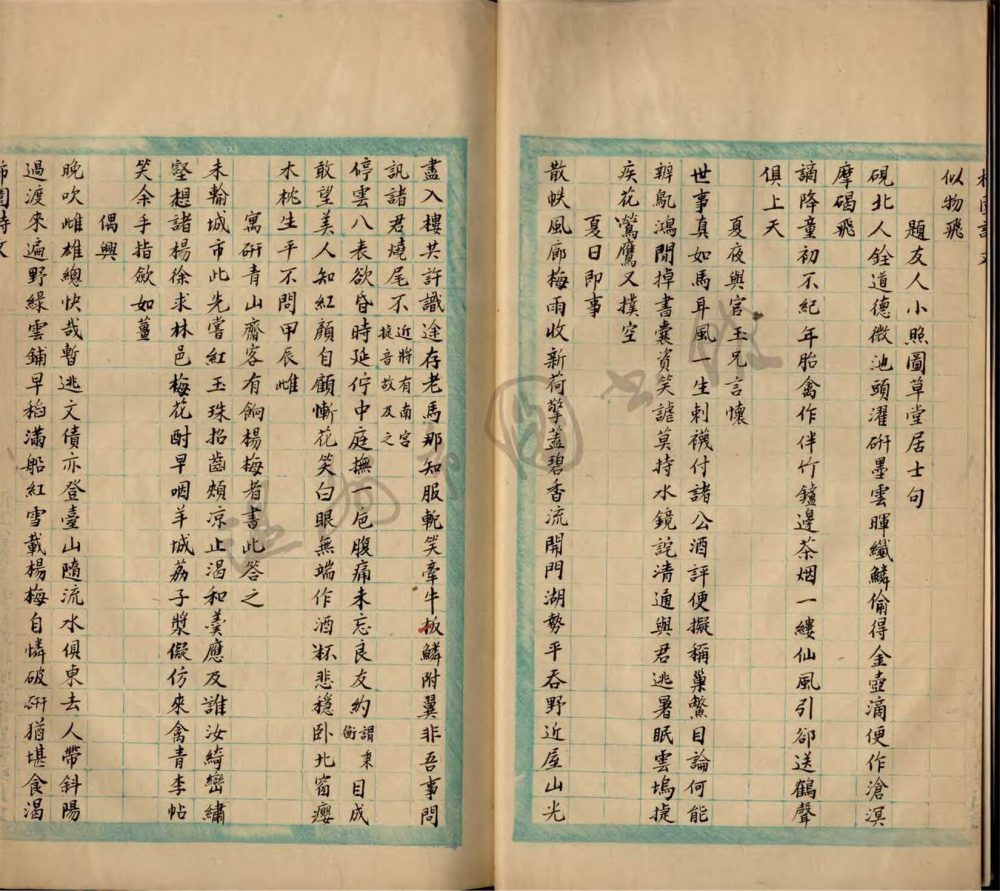 似物飛
題友人小照圖草堂居士句
硯北人銓道德微池頭濯硏墨雲暉纖鱗偷得金壺滴便作滄溟
摩碣飛
謫降童初不紀年胎禽作伴竹鑪邊茶烟一縷仙風引卻送鶴聲
俱上天
夏夜與宮玉兄言懷
世事真如馬耳風一生刺襪付諸公酒評便擬稱巢鱉目論何能
辨鳧鴻閒掉書囊資笑謔莫持水鏡詫清通與君逃暑眠雲塢捷
疾花鶯鷹又撲空
夏日即事
散帙風廊梅雨收新荷擎蓋碧香流開門湖勢平吞野近屋山光
盡入樓共許識途存老馬那知服軛笑牽牛板鱗附翼非吾事問
訊諸君燒尾不近將有南宮
捷音故及之
停雲八表欲昏時延佇中庭撫一卮腹痛未忘良友約謂東
衡目成
敢望美人知紅顏自顧慚花笑白眼無端作酒杯悲穩卧北窗癭
木桃生平不問甲辰雌
寓硏青山齋客有餉楊梅者書此答之
未輸城市此光嘗紅玉珠招齒頰凉止渴和羹應及誰汝綺巒繡
壑想諸楊徐求林邑梅花酎早咽羊城荔子漿儗仿來禽青李帖
笑余手指斂如薑
偶興
晚吹雌雄總快哉暫逃文債亦登臺山隨流水俱東去人帶斜陽
過渡來遍野綠雲鋪早稻滿船紅雪載楊梅自憐破硏猶堪食渴